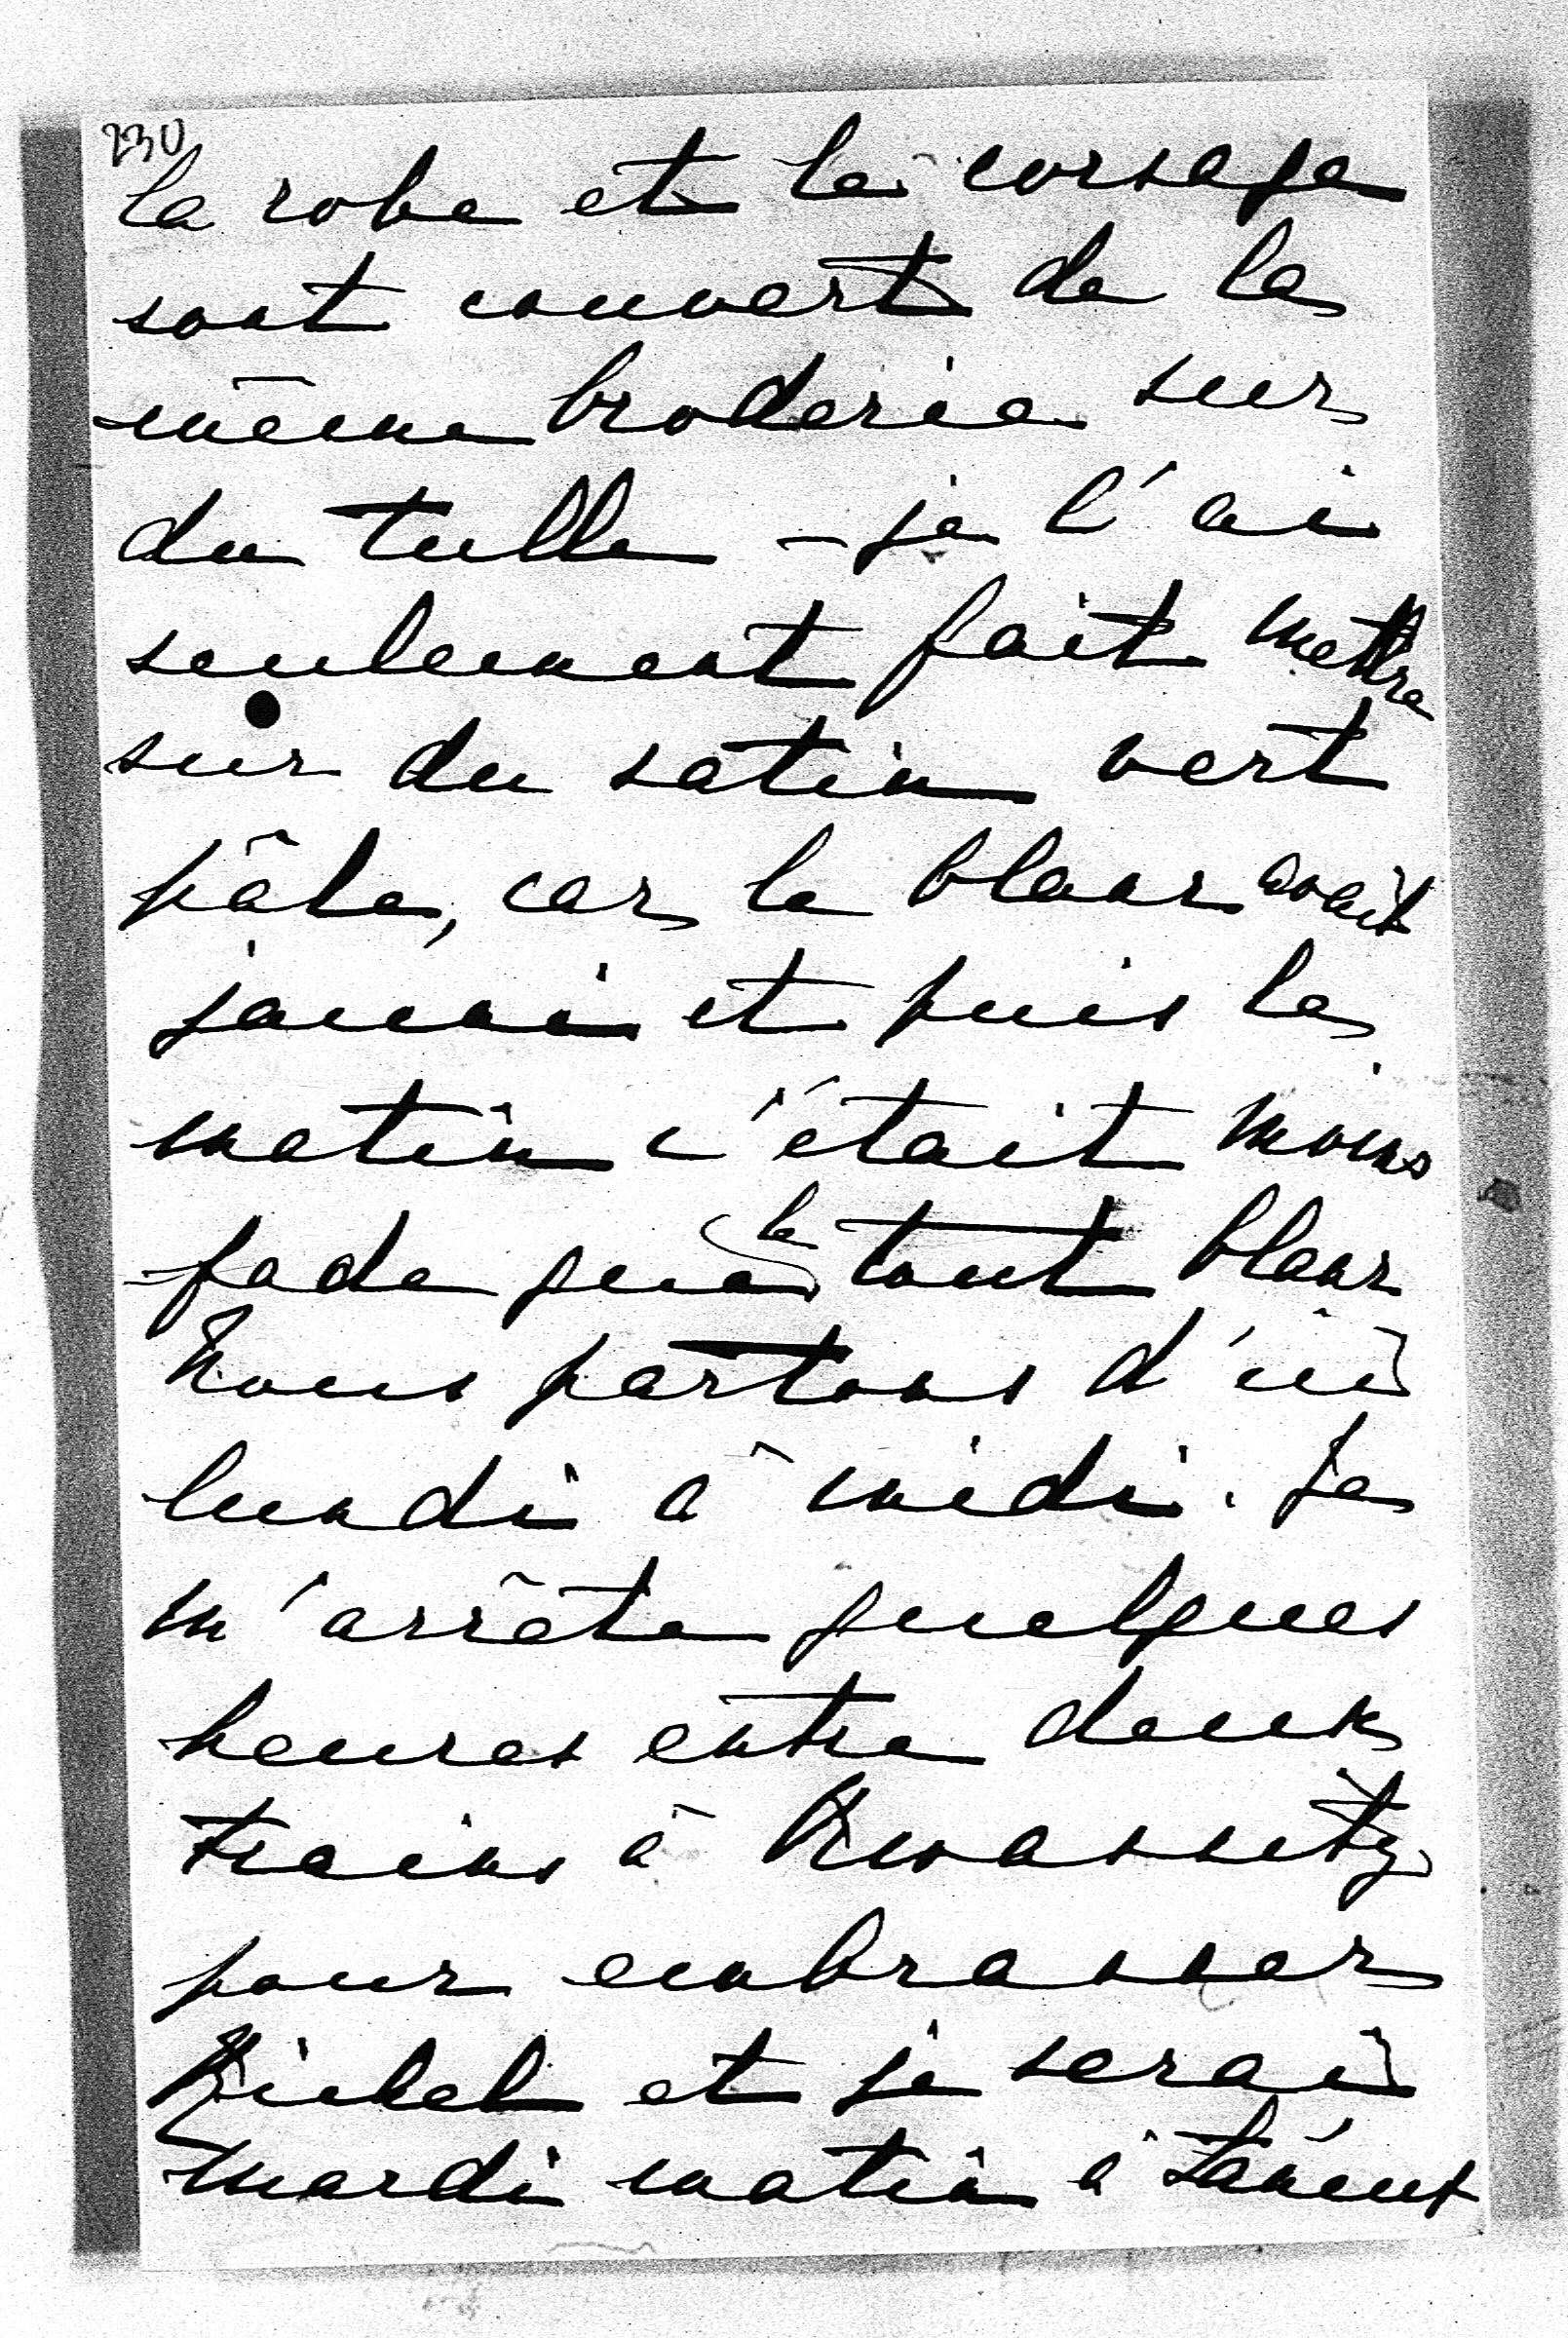 230
la robe et le corsage
sont couvert de la
même broderie sur
du tulle - je l'ai
seulement fait mettre
sur du satin vert
pâle, car le blanc avait
jauni et puis le
matin c'était moins
fade que le tout blanc
Nous partons d'ici
lundi à midi. Je
m'arrête quelques
heures entre deux
trains à Kwassitz
pour embrasser
Michel et je serai
mardi matin à